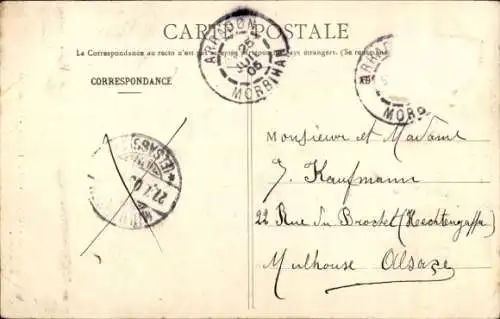 CARTE POSTALE
La Correspondance au recto n'est pas acceptée pays étrangers. (Se
CORRESPONDANCE
ARRADON
25
05
MORBIHAN
Monsieur et Madame
J. Kaufmann
22 Rue du Brochet (Hechtengasse)
Mulhouse Alsace